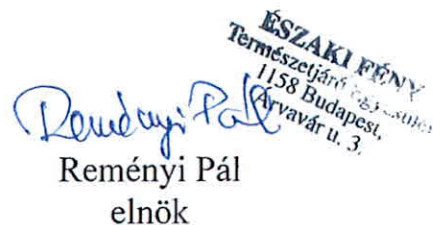 ÉSZAKI FÉNY
Természetjáró Egyesület
1158 Budapest,
Árvavár u. 3.
Reményi Pál
Reményi Pál
elnök